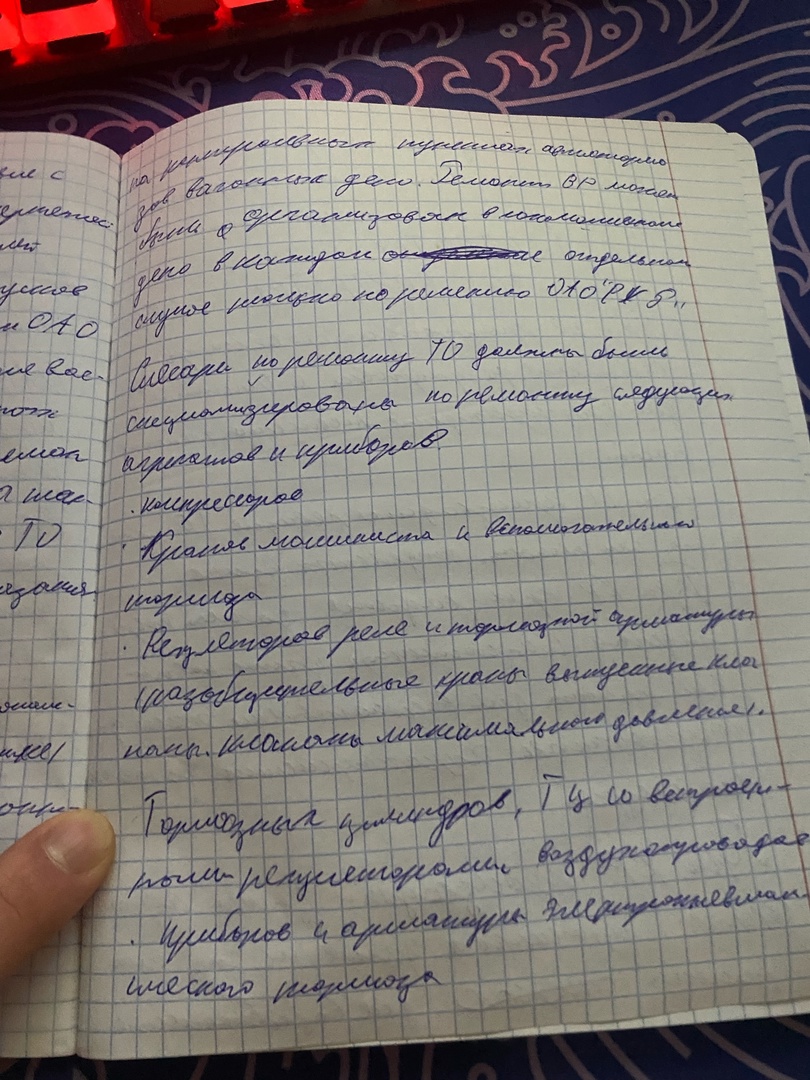 на контрольных пунктах автотормо
зов вагонных депо. Ремонт ВР может
быть организован в локомотивном
депо в каждом отдельном
случае только по решению ОАО "РЖД"
Слесари по ремонту ТО должны быть
специализированы по ремонту следующих
агрегатов и приборов.
· компрессоров
· Кранов машиниста и вспомогательного
тормоза
· Регуляторов реле и тормозной арматуры
(разобщительные краны выпускные кла
паны. клапаны максимального давления).
Тормозных цилиндров, ТЦ со встроен-
ными регуляторами воздухопроводов
· Приборов и арматуры электропневмати-
ческого тормоза
ОАО
ТО